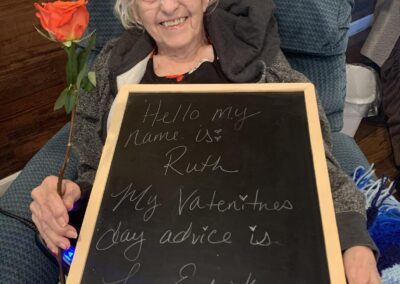 Hello my
name is:
Ruth
My Vatenitnes
day advice is